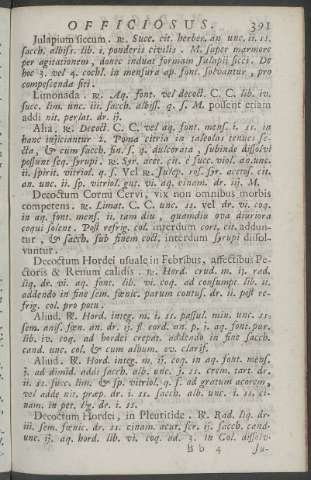 OFFICIOSUS. 391
Julapium siccum. ℞. Succ. cit. herber. an unc. ii. ss.
sacch. albiss. lib. i. ponderis civilis. M. super marmore
per agitationem, donec induat formam Julapii sicci. Do
hoc 3. vel 4. cochl. in mensura ap. font. solvantur, pro
compescenda siti.
Limonada. ℞. Aq. font. vel decoct. C. C. lib. iv.
succ. lim. unc. iii. sacch. albiss. q. s. M. possent etiam
addi nit. per lat. dr. ij.
Alia, ℞. Decoct. C. C. vel aq. font. mens. i. ss. in
hanc injiciantur 2. Poma citria in taleolas tenues se-
cta, & cum sacch. fin. s. q. dulcorata, subinde dissolvi
possunt seq. syrupi, ℞. Syr. acet. cit. è succ. viol. an. unc.
ii. spirit. vitriol. q. s. Vel ℞. Julep. ros. syr. acetos. cit.
an. unc. ii. sp. vitriol. gut. vi. aq. cinam. dr. iij. M.
Decoctum Cornu Cervi, vix non omnibus morbis
competens. ℞. Limat. C. C. unc. ss. vel dr. vi. coq.
in aq. font. mens. ii. tam diu, quamdiu ova duriora
coqui solent. Post refrig. col. interdum cort. cit. addun-
tur, & sacch. sub finem coct. interdum syrupi dissol-
vuntur.
Decoctum Hordei usuale in Febribus, affectibus Pe-
ctoris & Renum calidis. ℞. Hord. crud. m. ij. rad.
liq. dr. vi. aq. font. lib. vi. coq. ad consumpt. lib. ii.
addendo in fine sem. fœnic. parum contus. dr. ii. post re-
frig. col. pro potu.
Aliud. ℞. Hord. integ. m. i. ss. passul. min. unc. ss.
sem. anis. fœn. an. dr. ij. f. cord. an. p. i. aq. font. pur.
lib. iv. coq. ad hordei crepat. addendo in fine sacch.
cand. unc. col. & cum album. ov. clarif.
Aliud. ℞. Hord. integ. m. ij. coq. in aq. font. mens.
3. ad dimid. addi sacch. alb. unc. j. ss. crem. tart. dr.
ii. ss. succ. lim. & sp. vitriol. q. s. ad gratum acorem,
vel adde nit. præp. dr. i. ss. sacch. alb. unc. i. ss. ci-
nam. in pet. lig. dr. i. ss.
Decoctum Hordei, in Pleuritide. ℞. Rad. liq. dr.
iii. sem. fœnic. dr. ss. cinam. acut. scr. ij. sacch. cand.
unc. ij. aq. hord. lib. vi. coq. ad 3. in Col. dissolv-
Bb 4 Ju-